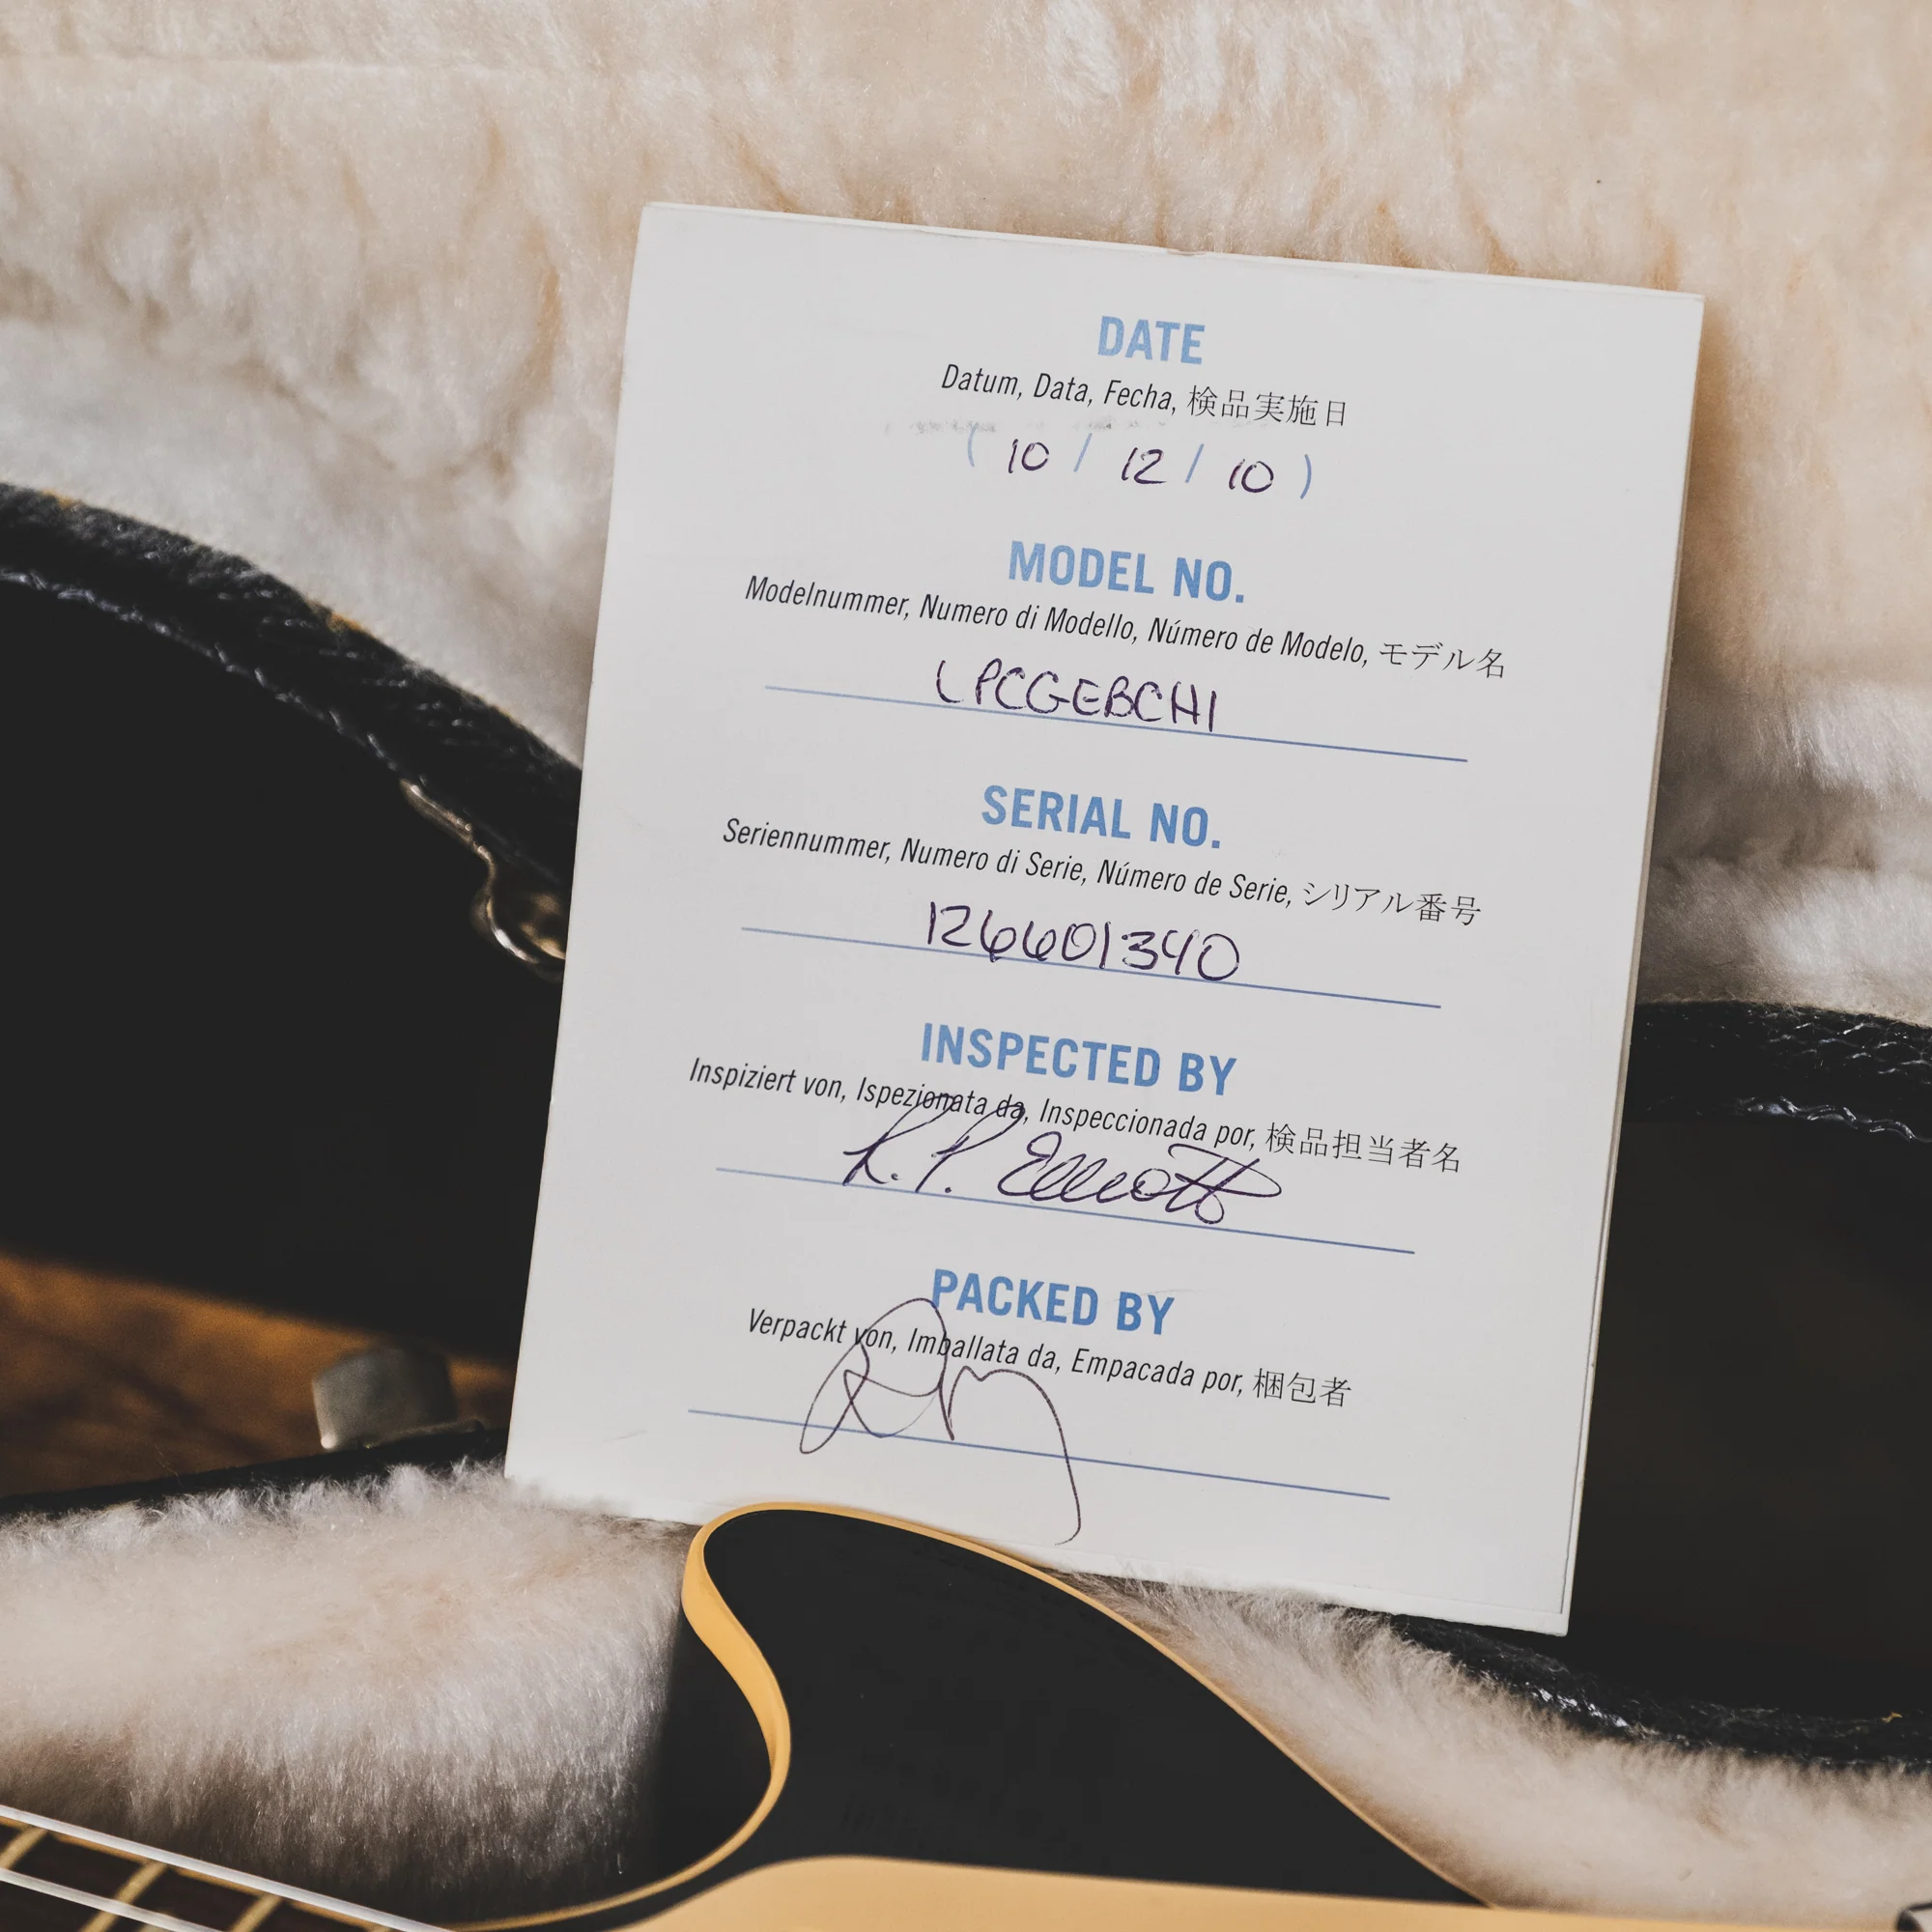 DATE
Datum, Data, Fecha, 検品実施日
( 10 / 12 / 10 )
MODEL NO.
Modelnummer, Numero di Modello, Número de Modelo, モデル名
LPCGEBCH1
SERIAL NO.
Seriennummer, Numero di Serie, Número de Serie, シリアル番号
126601340
INSPECTED BY
Inspiziert von, Ispezionata da, Inspeccionada por, 検品担当者名
R. P. Elliott
PACKED BY
Verpackt von, Imballata da, Empacada por, 梱包者